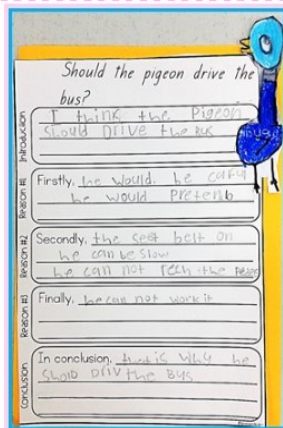 Should the pigeon drive the
bus?
Introduction
I think the Pigeon
Should Drive the Bus
Reason #1
Firstly, he would. he carful
he would Pretend
Reason #2
Secondly, the seet belt on
he can be slow
he can not rech the
Reason #3
Finally, he can not work it
Conclusion
In conclusion, that is why he
Shold Driv the Bus